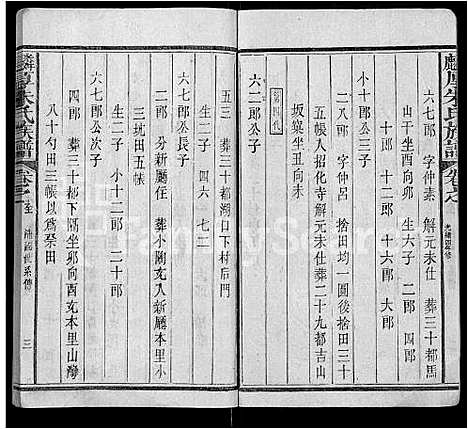 麟厚朱氏族譜 卷之 光緒四年修
六七郎 字仲素 解元未仕 葬三十都馬
山干坐酉向卯 生六子 二郎 四郎
十郎 十二郎 十六郎 大郎
小十郎公三子
二八郎 字仲呂 捨田均一圓後捨田三十
五帳人招化寺解元未仕葬二十九都吉山
坂窠坐丑向未
第四代
六二郎公子
五三 葬三十都湖口下村后門
生二子 四六 七二
六七郎公長子
二郎 分新廳住 葬小陶攴入新廳本里小
三坑田五帳
生二子 小十二郎 二十郎
六七郎公次子
四郎 葬三十都下隔坐卯向酉攴本里山灣
八十勺田三帳以爲祭田
麟厚朱氏族譜 卷之 三